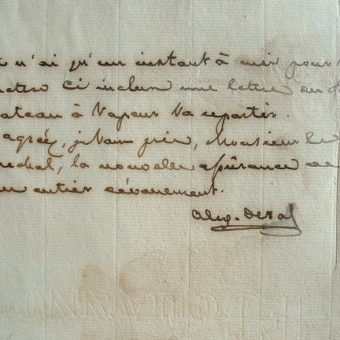 n'ai qu'un instant à moi pour
ci inclus une lettre
bateau à Vapeur Va repartir.
agréez, je vous prie, Monsieur le
la nouvelle assurance de
entier dévouement.
Alex. Deval